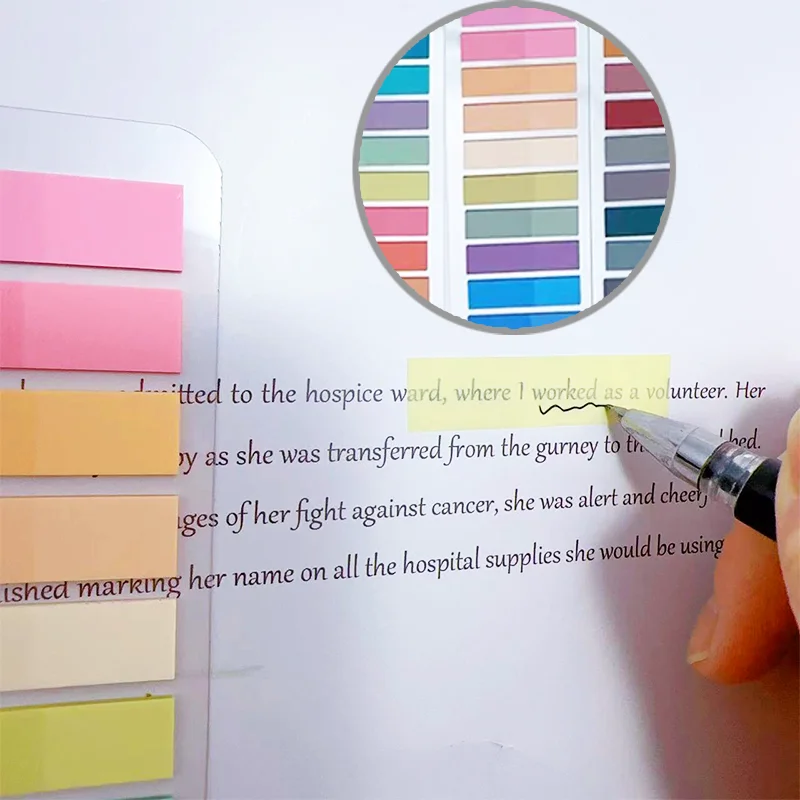 admitted to the hospice ward, where I worked as a volunteer. Her
by as she was transferred from the gurney to bed.
of her fight against cancer, she was alert and
marking her name on all the hospital supplies she would be using